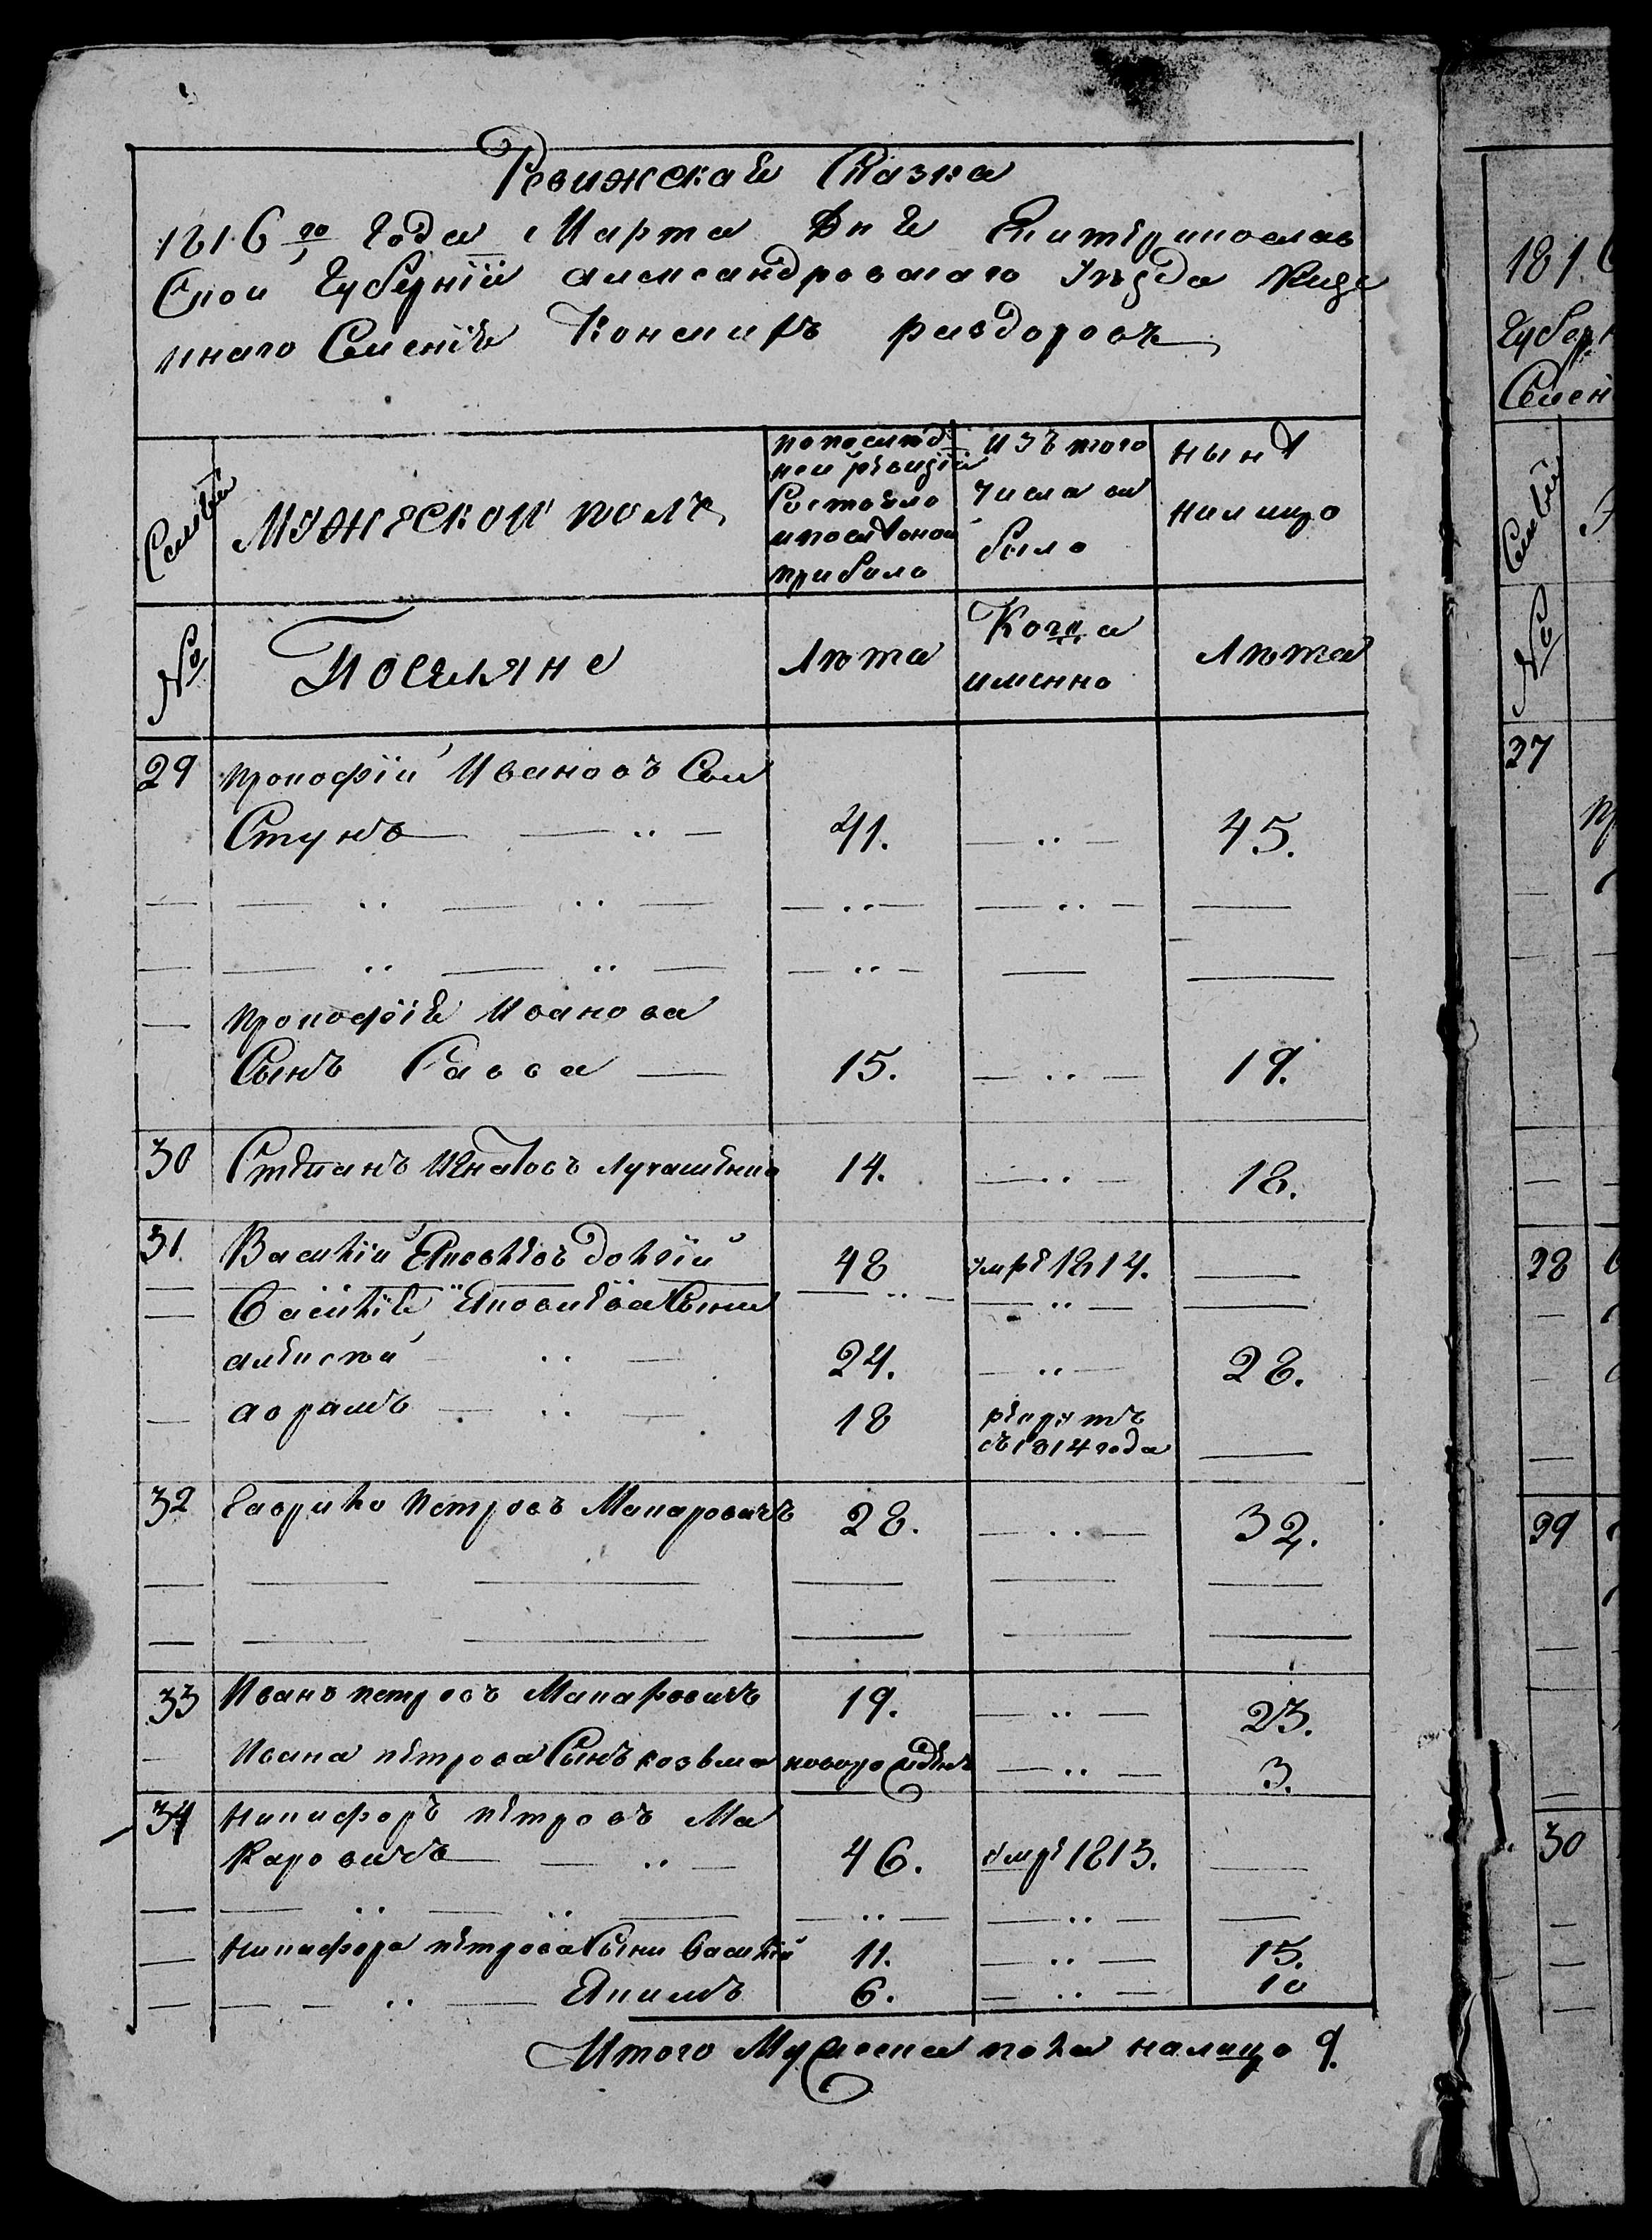 Ревижская Сказка
1816 го Года Марта Дня Екатеринослав
Скои Губернїи александровскаго Уѣзда Казе
ннаго Селенїя Конскихъ раздоровъ
Семьи
мужескои полъ
попослѣд
неи ревизїи
Состояло
ипослѣоной
прибыло
Изътого
числа вы
было
нынѣ
налицо
№
Поселяне
лѣта
Когда
именно
Лѣта
29 прокофїй Ивановъ Сын
Стукъ — .. — 41. — .. — 45.
— — .. — .. — — .. — — .. — —
— — .. — .. — — .. — — —
— прокофїя Иванова
Сынъ Савва — 15. — .. — 19.
30 Степанъ Игнатовъ Лукашенко 14. — .. — 18.
31. Василїй Яковлевъ долгїй 48 умре 1814. —
— — .. — — .. — —
— Василїя Яковлева Сыни
алексѣй — .. — 24. — .. — 28.
— аврамъ — .. — 18 рекрутъ
съ1814года —
32 Гаврило петровъ Макаровичъ 28. — .. — 32.
— — — — — —
— — — — — —
33 Иванъ петровъ Макаровичъ 19. — .. — 23.
— Ивана петрова Сынъ козьма новорожденъ — .. — 3.
34 никифоръ петровъ Ма
Каровичъ — .. — 46. умре 1813. —
— — .. — .. — — .. — — .. — —
— никифора петрова Сыни василїй 11. — .. — 15.
— — — .. — Якимъ 6. — .. — 10
Итого Мужеска пола налицо 9.
1816
Губерн
Селен
Семьи
№
27
28
29
30